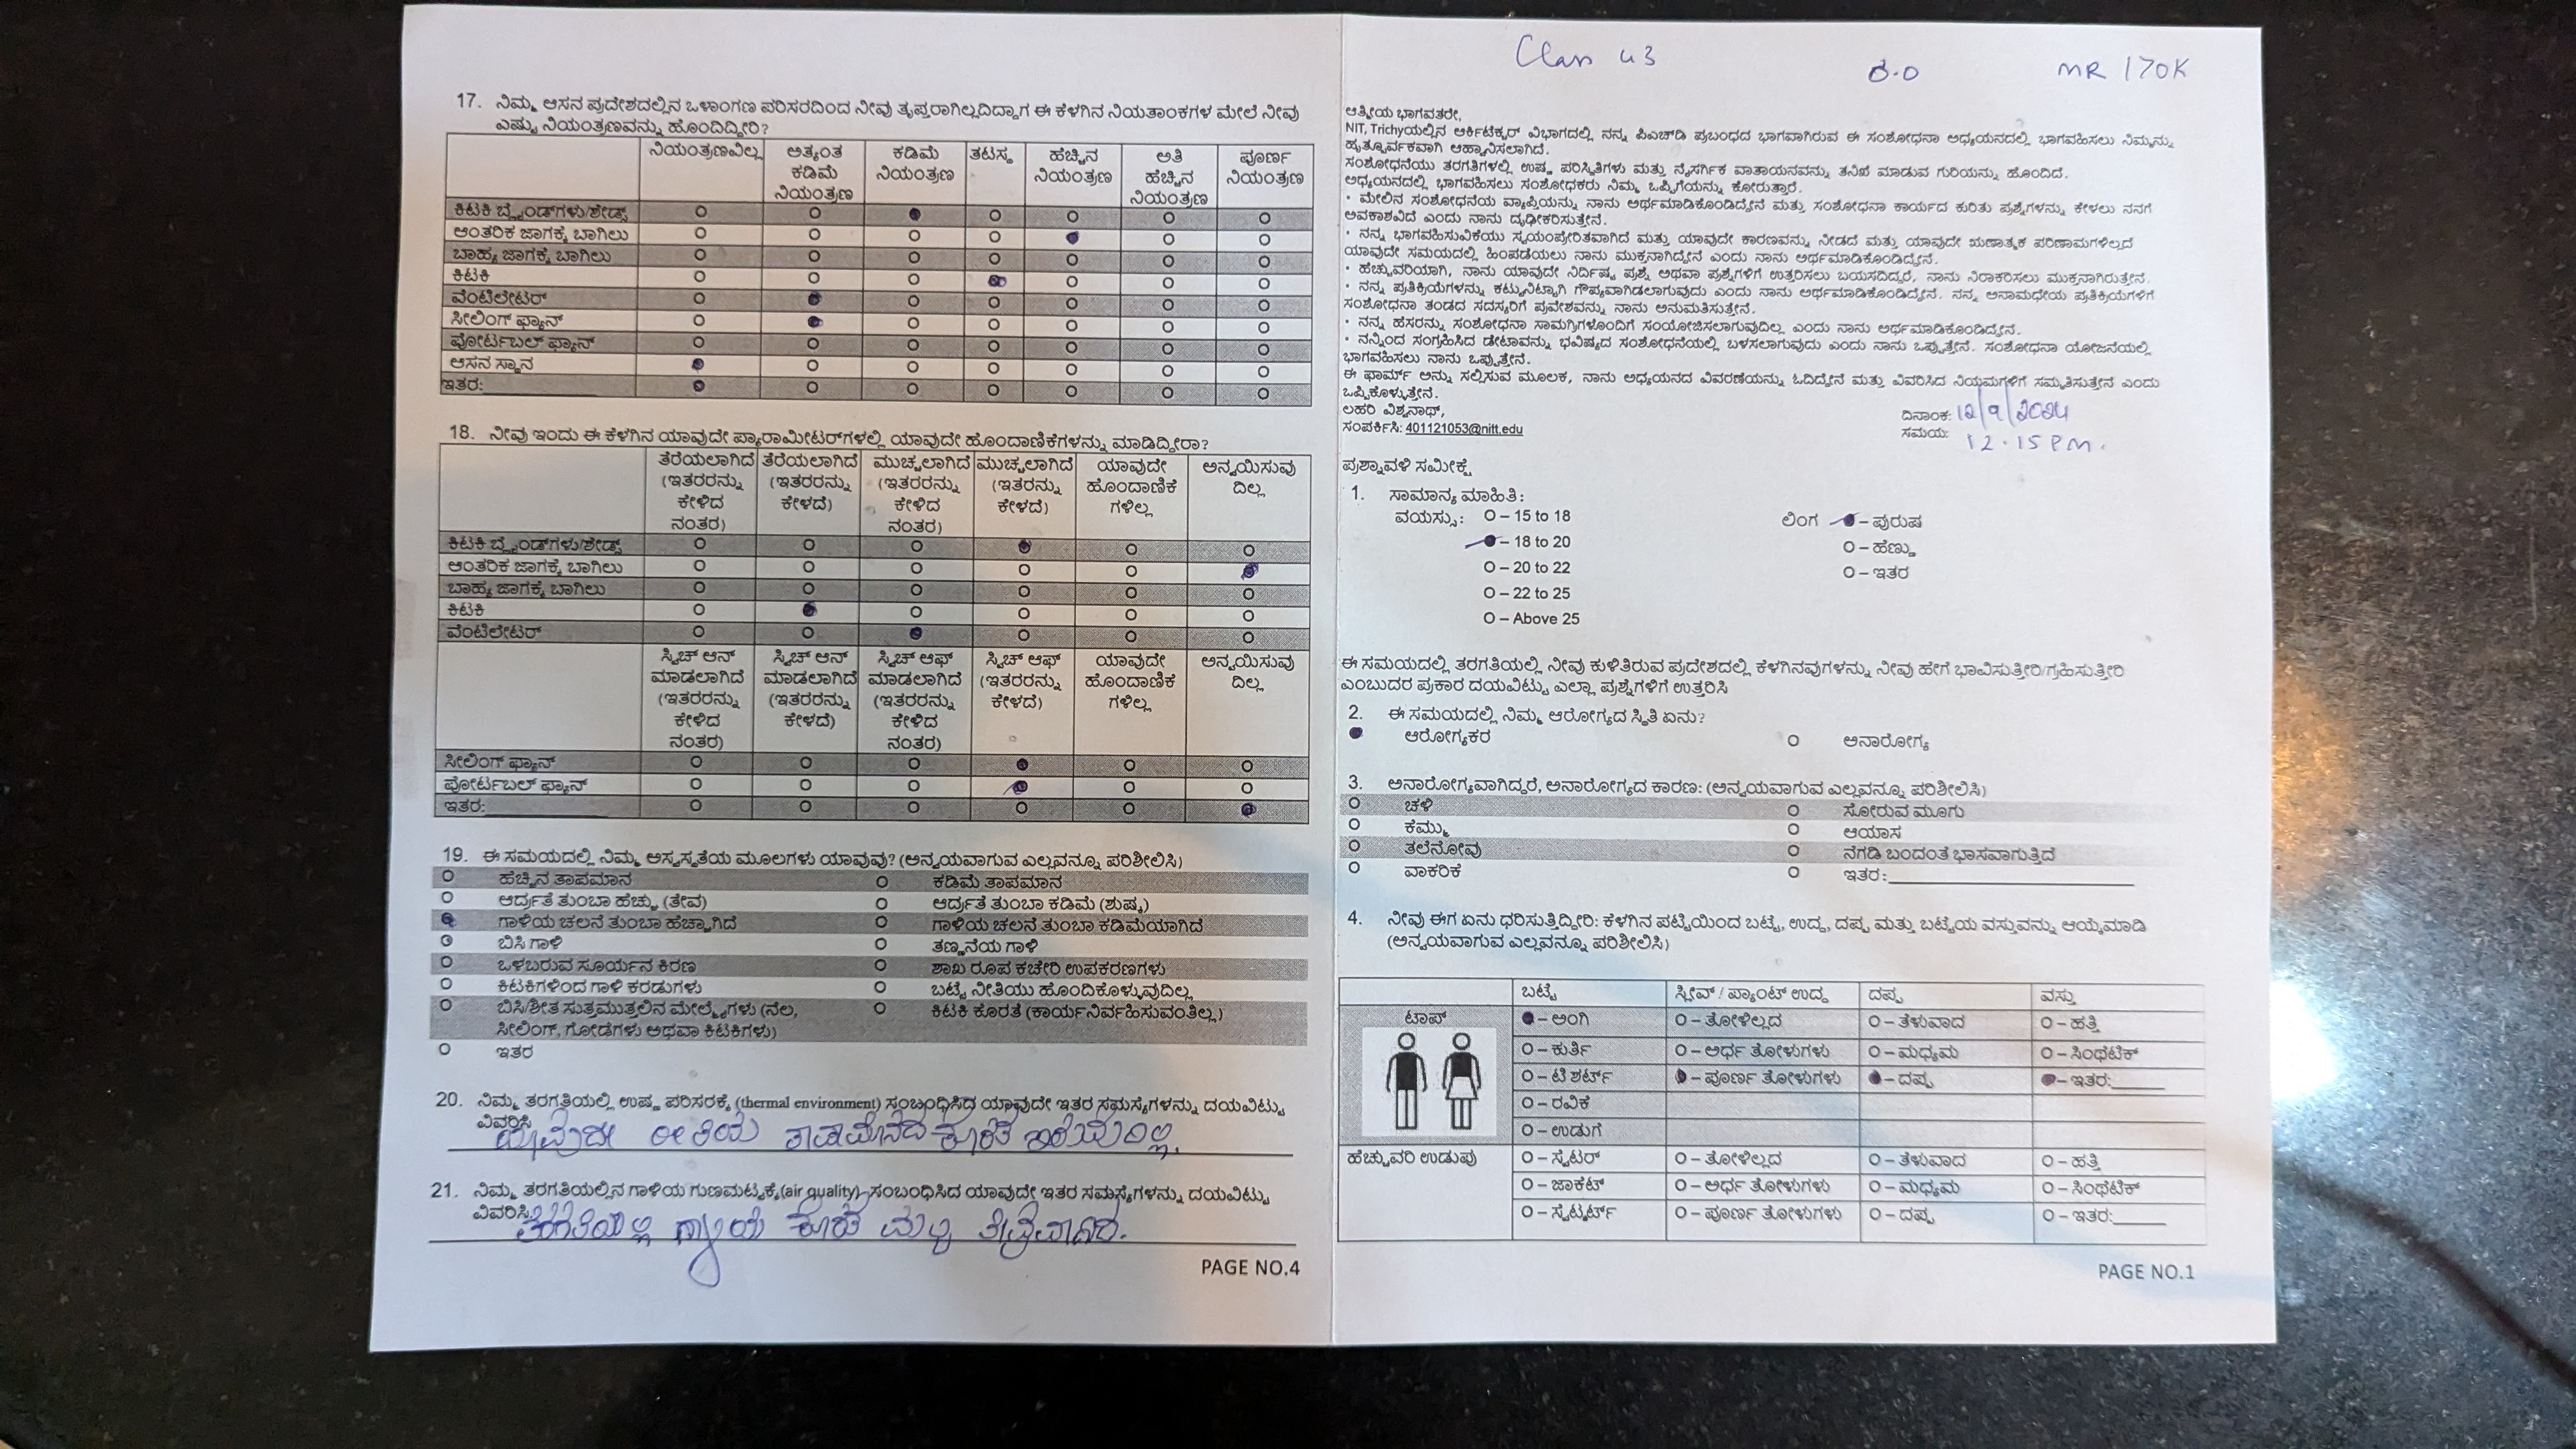 17. ನಿಮ್ಮ ಆಸನ ಪ್ರದೇಶದಲ್ಲಿನ ಒಳಾಂಗಣ ಪರಿಸರದಿಂದ ನೀವು ತೃಪ್ತರಾಗಿಲ್ಲದಿದ್ದಾಗ ಈ ಕೆಳಗಿನ ನಿಯತಾಂಕಗಳ ಮೇಲೆ ನೀವು
ಎಷ್ಟು ನಿಯಂತ್ರಣವನ್ನು ಹೊಂದಿದ್ದೀರಿ?
ನಿಯಂತ್ರಣವಿಲ್ಲ ಅತ್ಯಂತ ಕಡಿಮೆ ನಿಯಂತ್ರಣ ಕಡಿಮೆ ನಿಯಂತ್ರಣ ತಟಸ್ಥ ಹೆಚ್ಚಿನ ನಿಯಂತ್ರಣ ಅತಿ ಹೆಚ್ಚಿನ ನಿಯಂತ್ರಣ ಪೂರ್ಣ ನಿಯಂತ್ರಣ
ಕಿಟಕಿ ಬ್ಲೈಂಡ್‌ಗಳು/ಶೇಡ್ಸ್
ಆಂತರಿಕ ಜಾಗಕ್ಕೆ ಬಾಗಿಲು
ಬಾಹ್ಯ ಜಾಗಕ್ಕೆ ಬಾಗಿಲು
ಕಿಟಕಿ
ವೆಂಟಿಲೇಟರ್
ಸೀಲಿಂಗ್ ಫ್ಯಾನ್
ಪೋರ್ಟಬಲ್ ಫ್ಯಾನ್
ಆಸನ ಸ್ಥಾನ
ಇತರ:
18. ನೀವು ಇಂದು ಈ ಕೆಳಗಿನ ಯಾವುದೇ ಪ್ಯಾರಾಮೀಟರ್‌ಗಳಲ್ಲಿ ಯಾವುದೇ ಹೊಂದಾಣಿಕೆಗಳನ್ನು ಮಾಡಿದ್ದೀರಾ?
ತೆರೆಯಲಾಗಿದೆ (ಇತರರನ್ನು ಕೇಳಿದ ನಂತರ) ತೆರೆಯಲಾಗಿದೆ (ಇತರರನ್ನು ಕೇಳದೆ) ಮುಚ್ಚಲಾಗಿದೆ (ಇತರರನ್ನು ಕೇಳಿದ ನಂತರ) ಮುಚ್ಚಲಾಗಿದೆ (ಇತರರನ್ನು ಕೇಳದೆ) ಯಾವುದೇ ಹೊಂದಾಣಿಕೆ ಗಳಿಲ್ಲ ಅನ್ವಯಿಸುವು ದಿಲ್ಲ
ಕಿಟಕಿ ಬ್ಲೈಂಡ್‌ಗಳು/ಶೇಡ್ಸ್
ಆಂತರಿಕ ಜಾಗಕ್ಕೆ ಬಾಗಿಲು
ಬಾಹ್ಯ ಜಾಗಕ್ಕೆ ಬಾಗಿಲು
ಕಿಟಕಿ
ವೆಂಟಿಲೇಟರ್
ಸ್ವಿಚ್ ಆನ್ ಮಾಡಲಾಗಿದೆ (ಇತರರನ್ನು ಕೇಳಿದ ನಂತರ) ಸ್ವಿಚ್ ಆನ್ ಮಾಡಲಾಗಿದೆ (ಇತರರನ್ನು ಕೇಳದೆ) ಸ್ವಿಚ್ ಆಫ್ ಮಾಡಲಾಗಿದೆ (ಇತರರನ್ನು ಕೇಳಿದ ನಂತರ) ಸ್ವಿಚ್ ಆಫ್ (ಇತರರನ್ನು ಕೇಳದೆ) ಯಾವುದೇ ಹೊಂದಾಣಿಕೆ ಗಳಿಲ್ಲ ಅನ್ವಯಿಸುವು ದಿಲ್ಲ
ಸೀಲಿಂಗ್ ಫ್ಯಾನ್
ಪೋರ್ಟಬಲ್ ಫ್ಯಾನ್
ಇತರ:
19. ಈ ಸಮಯದಲ್ಲಿ ನಿಮ್ಮ ಅಸ್ವಸ್ಥತೆಯ ಮೂಲಗಳು ಯಾವುವು? (ಅನ್ವಯವಾಗುವ ಎಲ್ಲವನ್ನೂ ಪರಿಶೀಲಿಸಿ)
ಹೆಚ್ಚಿನ ತಾಪಮಾನ ಕಡಿಮೆ ತಾಪಮಾನ
ಆರ್ದ್ರತೆ ತುಂಬಾ ಹೆಚ್ಚು (ತೇವ) ಆರ್ದ್ರತೆ ತುಂಬಾ ಕಡಿಮೆ (ಶುಷ್ಕ)
ಗಾಳಿಯ ಚಲನೆ ತುಂಬಾ ಹೆಚ್ಚಾಗಿದೆ ಗಾಳಿಯ ಚಲನೆ ತುಂಬಾ ಕಡಿಮೆಯಾಗಿದೆ
ಬಿಸಿ ಗಾಳಿ ತಣ್ಣನೆಯ ಗಾಳಿ
ಒಳಬರುವ ಸೂರ್ಯನ ಕಿರಣ ಶಾಖ ರೂಪ ಕಚೇರಿ ಉಪಕರಣಗಳು
ಕಿಟಕಿಗಳಿಂದ ಗಾಳಿ ಕರಡುಗಳು ಬಟ್ಟೆ ನೀತಿಯು ಹೊಂದಿಕೊಳ್ಳುವುದಿಲ್ಲ
ಬಿಸಿ/ಶೀತ ಸುತ್ತಮುತ್ತಲಿನ ಮೇಲ್ಮೈಗಳು (ನೆಲ, ಕಿಟಕಿ ಕೊರತೆ (ಕಾರ್ಯನಿರ್ವಹಿಸುವಂತಿಲ್ಲ)
ಸೀಲಿಂಗ್, ಗೋಡೆಗಳು ಅಥವಾ ಕಿಟಕಿಗಳು)
ಇತರ
20. ನಿಮ್ಮ ತರಗತಿಯಲ್ಲಿ ಉಷ್ಣ ಪರಿಸರಕ್ಕೆ (thermal environment) ಸಂಬಂಧಿಸಿದ ಯಾವುದೇ ಇತರ ಸಮಸ್ಯೆಗಳನ್ನು ದಯವಿಟ್ಟು
ವಿವರಿಸಿ
ಯಾವುದೇ ರೀತಿಯ ತಾಪಮಾನದ ಕೊರತೆ
21. ನಿಮ್ಮ ತರಗತಿಯಲ್ಲಿನ ಗಾಳಿಯ ಗುಣಮಟ್ಟಕ್ಕೆ (air quality) ಸಂಬಂಧಿಸಿದ ಯಾವುದೇ ಇತರ ಸಮಸ್ಯೆಗಳನ್ನು ದಯವಿಟ್ಟು
ವಿವರಿಸಿ
ಗಾಳಿಯ ಕೊರತೆ
PAGE NO.4
Class 43 MR 170K
ಆತ್ಮೀಯ ಭಾಗವತರೇ,
NIT, Trichyಯಲ್ಲಿನ ಆರ್ಕಿಟೆಕ್ಚರ್ ವಿಭಾಗದಲ್ಲಿ ನನ್ನ ಪಿಎಚ್‌ಡಿ ಪ್ರಬಂಧದ ಭಾಗವಾಗಿರುವ ಈ ಸಂಶೋಧನಾ ಅಧ್ಯಯನದಲ್ಲಿ ಭಾಗವಹಿಸಲು ನಿಮ್ಮನ್ನು
ಹೃತ್ಪೂರ್ವಕವಾಗಿ ಆಹ್ವಾನಿಸಲಾಗಿದೆ.
ಸಂಶೋಧನೆಯು ತರಗತಿಗಳಲ್ಲಿ ಉಷ್ಣ ಪರಿಸ್ಥಿತಿಗಳು ಮತ್ತು ನೈಸರ್ಗಿಕ ವಾತಾಯನವನ್ನು ತನಿಖೆ ಮಾಡುವ ಗುರಿಯನ್ನು ಹೊಂದಿದೆ.
ಅಧ್ಯಯನದಲ್ಲಿ ಭಾಗವಹಿಸಲು ಸಂಶೋಧಕರು ನಿಮ್ಮ ಒಪ್ಪಿಗೆಯನ್ನು ಕೋರುತ್ತಾರೆ.
• ಮೇಲಿನ ಸಂಶೋಧನೆಯ ವ್ಯಾಪ್ತಿಯನ್ನು ನಾನು ಅರ್ಥಮಾಡಿಕೊಂಡಿದ್ದೇನೆ ಮತ್ತು ಸಂಶೋಧನಾ ಕಾರ್ಯದ ಕುರಿತು ಪ್ರಶ್ನೆಗಳನ್ನು ಕೇಳಲು ನನಗೆ
ಅವಕಾಶವಿದೆ ಎಂದು ನಾನು ದೃಢೀಕರಿಸುತ್ತೇನೆ.
• ನನ್ನ ಭಾಗವಹಿಸುವಿಕೆಯು ಸ್ವಯಂಪ್ರೇರಿತವಾಗಿದೆ ಮತ್ತು ಯಾವುದೇ ಕಾರಣವನ್ನು ನೀಡದೆ ಮತ್ತು ಯಾವುದೇ ಋಣಾತ್ಮಕ ಪರಿಣಾಮಗಳಿಲ್ಲದೆ
ಯಾವುದೇ ಸಮಯದಲ್ಲಿ ಹಿಂಪಡೆಯಲು ನಾನು ಮುಕ್ತನಾಗಿದ್ದೇನೆ ಎಂದು ನಾನು ಅರ್ಥಮಾಡಿಕೊಂಡಿದ್ದೇನೆ.
• ಹೆಚ್ಚುವರಿಯಾಗಿ, ನಾನು ಯಾವುದೇ ನಿರ್ದಿಷ್ಟ ಪ್ರಶ್ನೆ ಅಥವಾ ಪ್ರಶ್ನೆಗಳಿಗೆ ಉತ್ತರಿಸಲು ಬಯಸದಿದ್ದರೆ, ನಾನು ನಿರಾಕರಿಸಲು ಮುಕ್ತನಾಗಿರುತ್ತೇನೆ.
• ನನ್ನ ಪ್ರತಿಕ್ರಿಯೆಗಳನ್ನು ಕಟ್ಟುನಿಟ್ಟಾಗಿ ಗೌಪ್ಯವಾಗಿಡಲಾಗುವುದು ಎಂದು ನಾನು ಅರ್ಥಮಾಡಿಕೊಂಡಿದ್ದೇನೆ. ನನ್ನ ಅನಾಮಧೇಯ ಪ್ರತಿಕ್ರಿಯೆಗಳಿಗೆ
ಸಂಶೋಧನಾ ತಂಡದ ಸದಸ್ಯರಿಗೆ ಪ್ರವೇಶವನ್ನು ನಾನು ಅನುಮತಿಸುತ್ತೇನೆ.
• ನನ್ನ ಹೆಸರನ್ನು ಸಂಶೋಧನಾ ಸಾಮಗ್ರಿಗಳೊಂದಿಗೆ ಸಂಯೋಜಿಸಲಾಗುವುದಿಲ್ಲ ಎಂದು ನಾನು ಅರ್ಥಮಾಡಿಕೊಂಡಿದ್ದೇನೆ.
• ನನ್ನಿಂದ ಸಂಗ್ರಹಿಸಿದ ಡೇಟಾವನ್ನು ಭವಿಷ್ಯದ ಸಂಶೋಧನೆಯಲ್ಲಿ ಬಳಸಲಾಗುವುದು ಎಂದು ನಾನು ಒಪ್ಪುತ್ತೇನೆ. ಸಂಶೋಧನಾ ಯೋಜನೆಯಲ್ಲಿ
ಭಾಗವಹಿಸಲು ನಾನು ಒಪ್ಪುತ್ತೇನೆ.
ಈ ಫಾರ್ಮ್ ಅನ್ನು ಸಲ್ಲಿಸುವ ಮೂಲಕ, ನಾನು ಅಧ್ಯಯನದ ವಿವರಣೆಯನ್ನು ಓದಿದ್ದೇನೆ ಮತ್ತು ವಿವರಿಸಿದ ನಿಯಮಗಳಿಗೆ ಸಮ್ಮತಿಸುತ್ತೇನೆ ಎಂದು
ಒಪ್ಪಿಕೊಳ್ಳುತ್ತೇನೆ.
ಲಹರಿ ವಿಶ್ವನಾಥ್,
ಸಂಪರ್ಕಿಸಿ: 401121053@nitt.edu
ದಿನಾಂಕ: 12/9/2024
ಸಮಯ: 12.15 PM.
ಪ್ರಶ್ನಾವಳಿ ಸಮೀಕ್ಷೆ
1. ಸಾಮಾನ್ಯ ಮಾಹಿತಿ:
ವಯಸ್ಸು: O – 15 to 18 ಲಿಂಗ – ಪುರುಷ
– 18 to 20 O – ಹೆಣ್ಣು
O – 20 to 22 O – ಇತರ
O – 22 to 25
O – Above 25
ಈ ಸಮಯದಲ್ಲಿ ತರಗತಿಯಲ್ಲಿ ನೀವು ಕುಳಿತಿರುವ ಪ್ರದೇಶದಲ್ಲಿ ಕೆಳಗಿನವುಗಳನ್ನು ನೀವು ಹೇಗೆ ಭಾವಿಸುತ್ತೀರಿ/ಗ್ರಹಿಸುತ್ತೀರಿ
ಎಂಬುದರ ಪ್ರಕಾರ ದಯವಿಟ್ಟು ಎಲ್ಲಾ ಪ್ರಶ್ನೆಗಳಿಗೆ ಉತ್ತರಿಸಿ
2. ಈ ಸಮಯದಲ್ಲಿ ನಿಮ್ಮ ಆರೋಗ್ಯದ ಸ್ಥಿತಿ ಏನು?
ಆರೋಗ್ಯಕರ ಅನಾರೋಗ್ಯ
3. ಅನಾರೋಗ್ಯವಾಗಿದ್ದರೆ, ಅನಾರೋಗ್ಯದ ಕಾರಣ: (ಅನ್ವಯವಾಗುವ ಎಲ್ಲವನ್ನೂ ಪರಿಶೀಲಿಸಿ)
ಚಳಿ ಸೋರುವ ಮೂಗು
ಕೆಮ್ಮು ಆಯಾಸ
ತಲೆನೋವು ನೆಗಡಿ ಬಂದಂತೆ ಭಾಸವಾಗುತ್ತಿದೆ
ವಾಕರಿಕೆ ಇತರ:
4. ನೀವು ಈಗ ಏನು ಧರಿಸುತ್ತಿದ್ದೀರಿ: ಕೆಳಗಿನ ಪಟ್ಟಿಯಿಂದ ಬಟ್ಟೆ, ಉದ್ದ, ದಪ್ಪ ಮತ್ತು ಬಟ್ಟೆಯ ವಸ್ತುವನ್ನು ಆಯ್ಕೆಮಾಡಿ
(ಅನ್ವಯವಾಗುವ ಎಲ್ಲವನ್ನೂ ಪರಿಶೀಲಿಸಿ)
ಬಟ್ಟೆ ಸ್ಲೀವ್ / ಪ್ಯಾಂಟ್ ಉದ್ದ ದಪ್ಪ ವಸ್ತು
ಟಾಪ್ – ಅಂಗಿ O – ತೋಳಿಲ್ಲದ O – ತೆಳುವಾದ O – ಹತ್ತಿ
O – ಕುರ್ತಿ O – ಅರ್ಧ ತೋಳುಗಳು O – ಮಧ್ಯಮ O – ಸಿಂಥೆಟಿಕ್
O – ಟಿ ಶರ್ಟ್ – ಪೂರ್ಣ ತೋಳುಗಳು – ದಪ್ಪ – ಇತರ:
O – ರವಿಕೆ
O – ಉಡುಗೆ
ಹೆಚ್ಚುವರಿ ಉಡುಪು O – ಸ್ವೆಟರ್ O – ತೋಳಿಲ್ಲದ O – ತೆಳುವಾದ O – ಹತ್ತಿ
O – ಜಾಕೆಟ್ O – ಅರ್ಧ ತೋಳುಗಳು O – ಮಧ್ಯಮ O – ಸಿಂಥೆಟಿಕ್
O – ಸ್ವೆಟ್ಶರ್ಟ್ O – ಪೂರ್ಣ ತೋಳುಗಳು O – ದಪ್ಪ O – ಇತರ:
PAGE NO.1